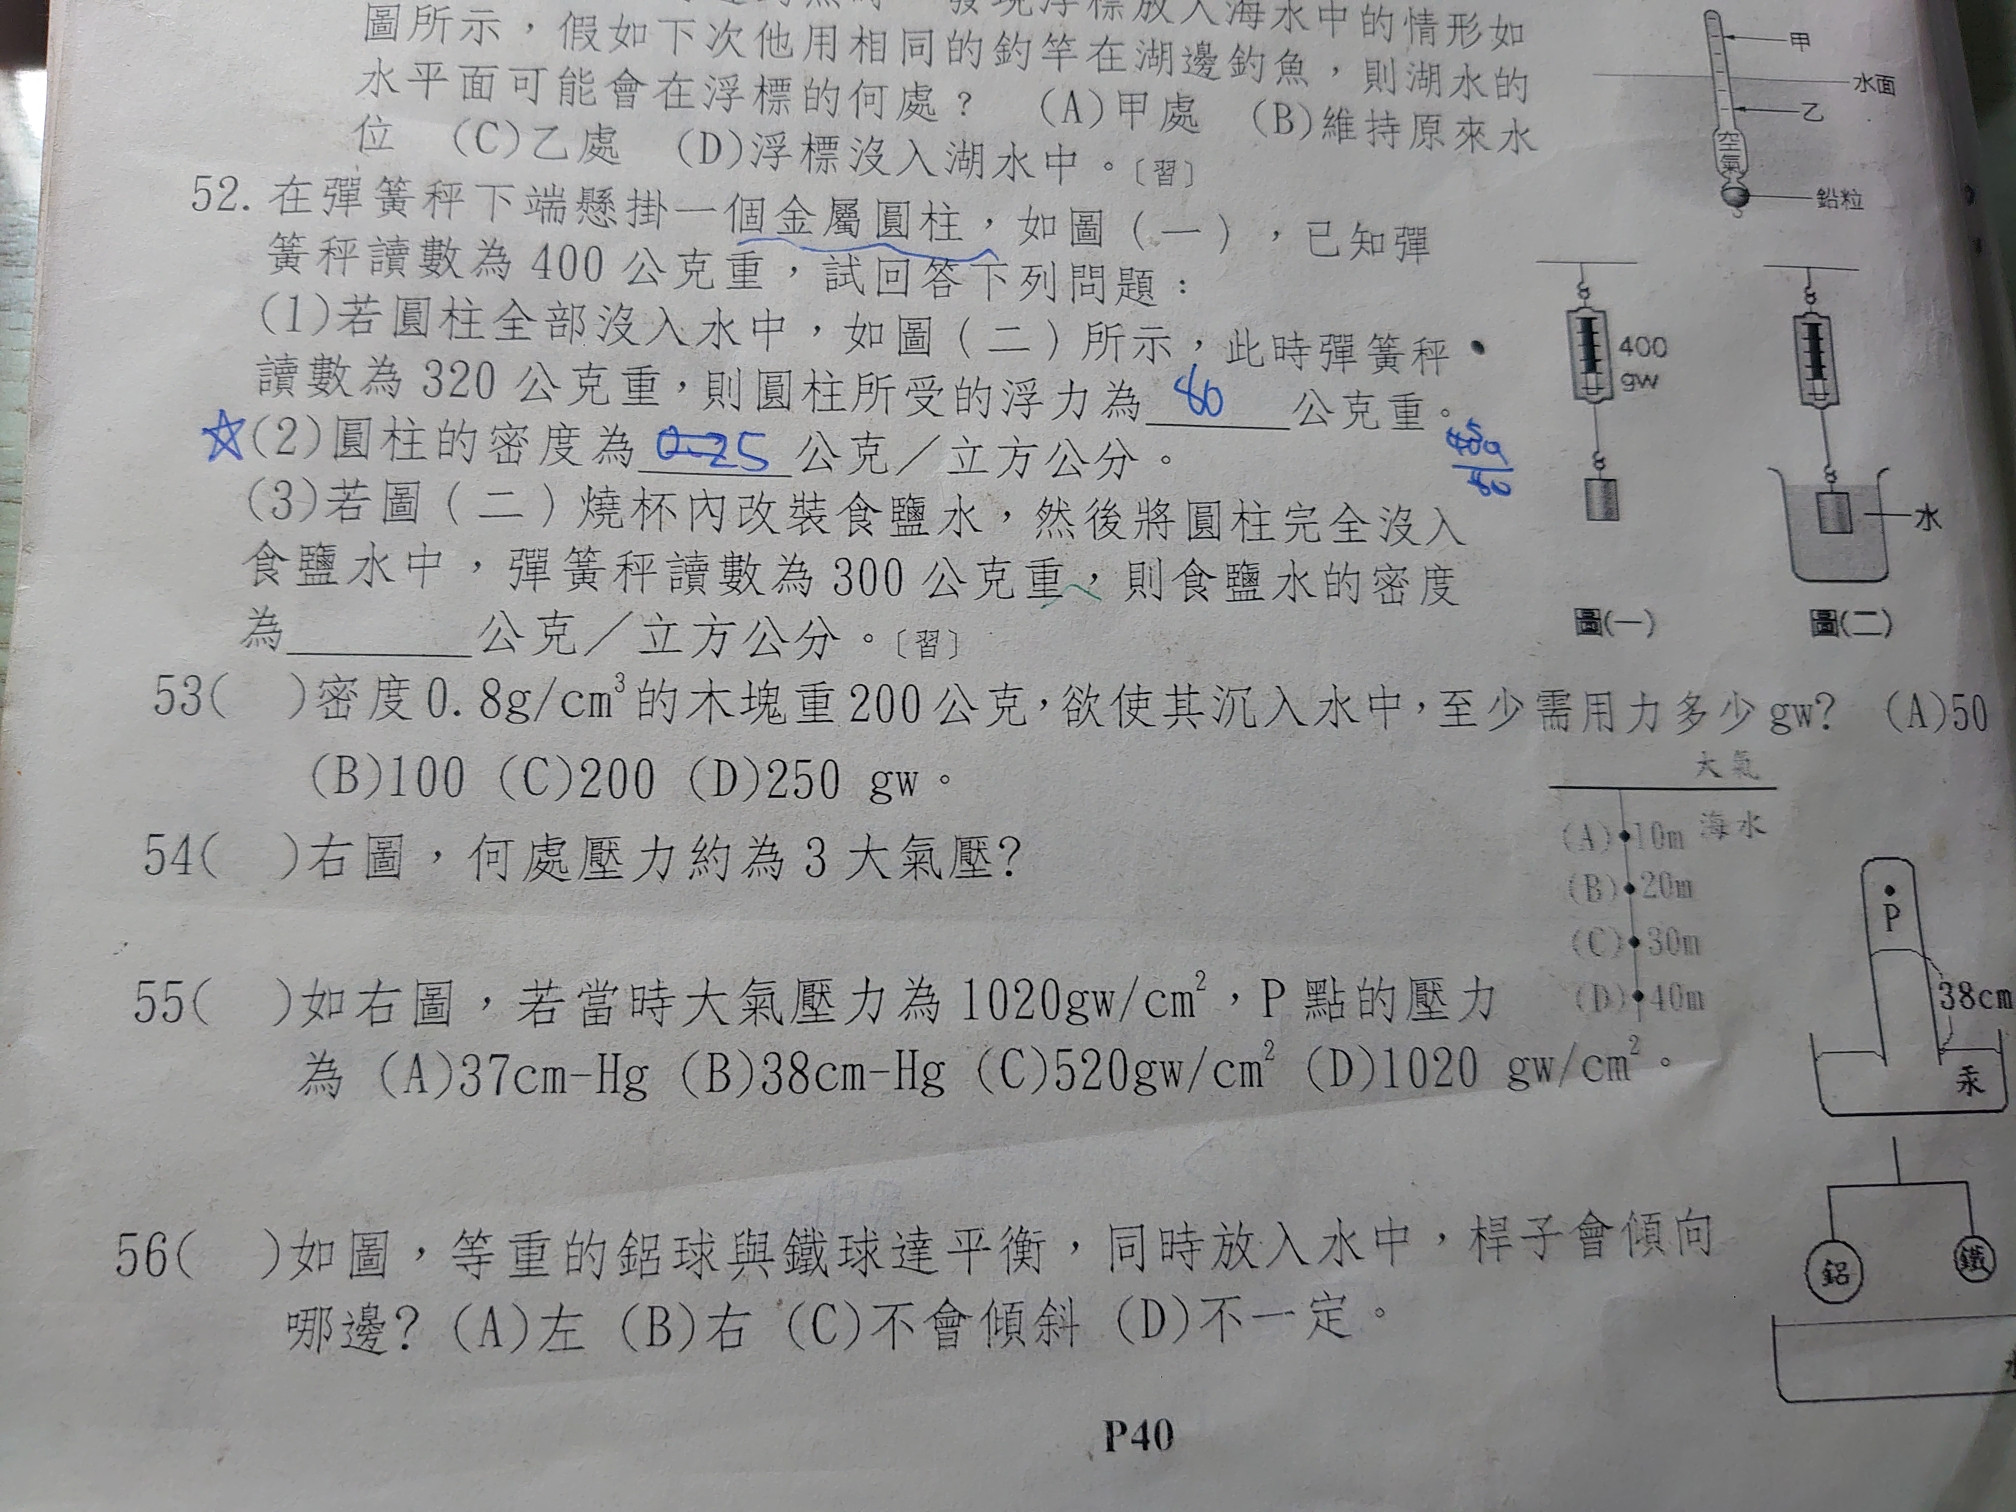 發現浮標放入海水中的情形如
圖所示，假如下次他用相同的釣竿在湖邊釣魚，則湖水的
水平面可能會在浮標的何處？ (A)甲處 (B)維持原來水
位 (C)乙處 (D)浮標沒入湖水中。〔習〕
甲
水面
乙
空氣
鉛粒
52.在彈簧秤下端懸掛一個金屬圓柱，如圖(一)，已知彈
簧秤讀數為400公克重，試回答下列問題：
(1)若圓柱全部沒入水中，如圖(二)所示，此時彈簧秤
讀數為320公克重，則圓柱所受的浮力為 80 公克重。
☆(2)圓柱的密度為 0.25 公克／立方公分。
(3)若圖(二)燒杯內改裝食鹽水，然後將圓柱完全沒入
食鹽水中，彈簧秤讀數為300公克重，則食鹽水的密度
為________公克／立方公分。〔習〕
400
gw
水
圖(一)
圖(二)
53( )密度0.8g/cm³的木塊重200公克，欲使其沉入水中，至少需用力多少gw? (A)50
(B)100 (C)200 (D)250 gw。
54( )右圖，何處壓力約為3大氣壓?
大氣
海水
(A) 10m
(B) 20m
(C) 30m
(D) 40m
55( )如右圖，若當時大氣壓力為1020gw/cm²，P點的壓力
為 (A)37cm-Hg (B)38cm-Hg (C)520gw/cm² (D)1020 gw/cm²。
P
38cm
汞
56( )如圖，等重的鋁球與鐵球達平衡，同時放入水中，桿子會傾向
哪邊? (A)左 (B)右 (C)不會傾斜 (D)不一定。
鋁
鐵
P40